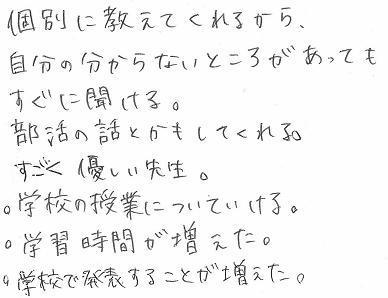 個別に教えてくれるから、
自分の分からないところがあっても
すぐに聞ける。
部活の話とかもしてくれる。
すごく優しい先生。
。学校の授業についていける。
。学習時間が増えた。
。学校で発表することが増えた。